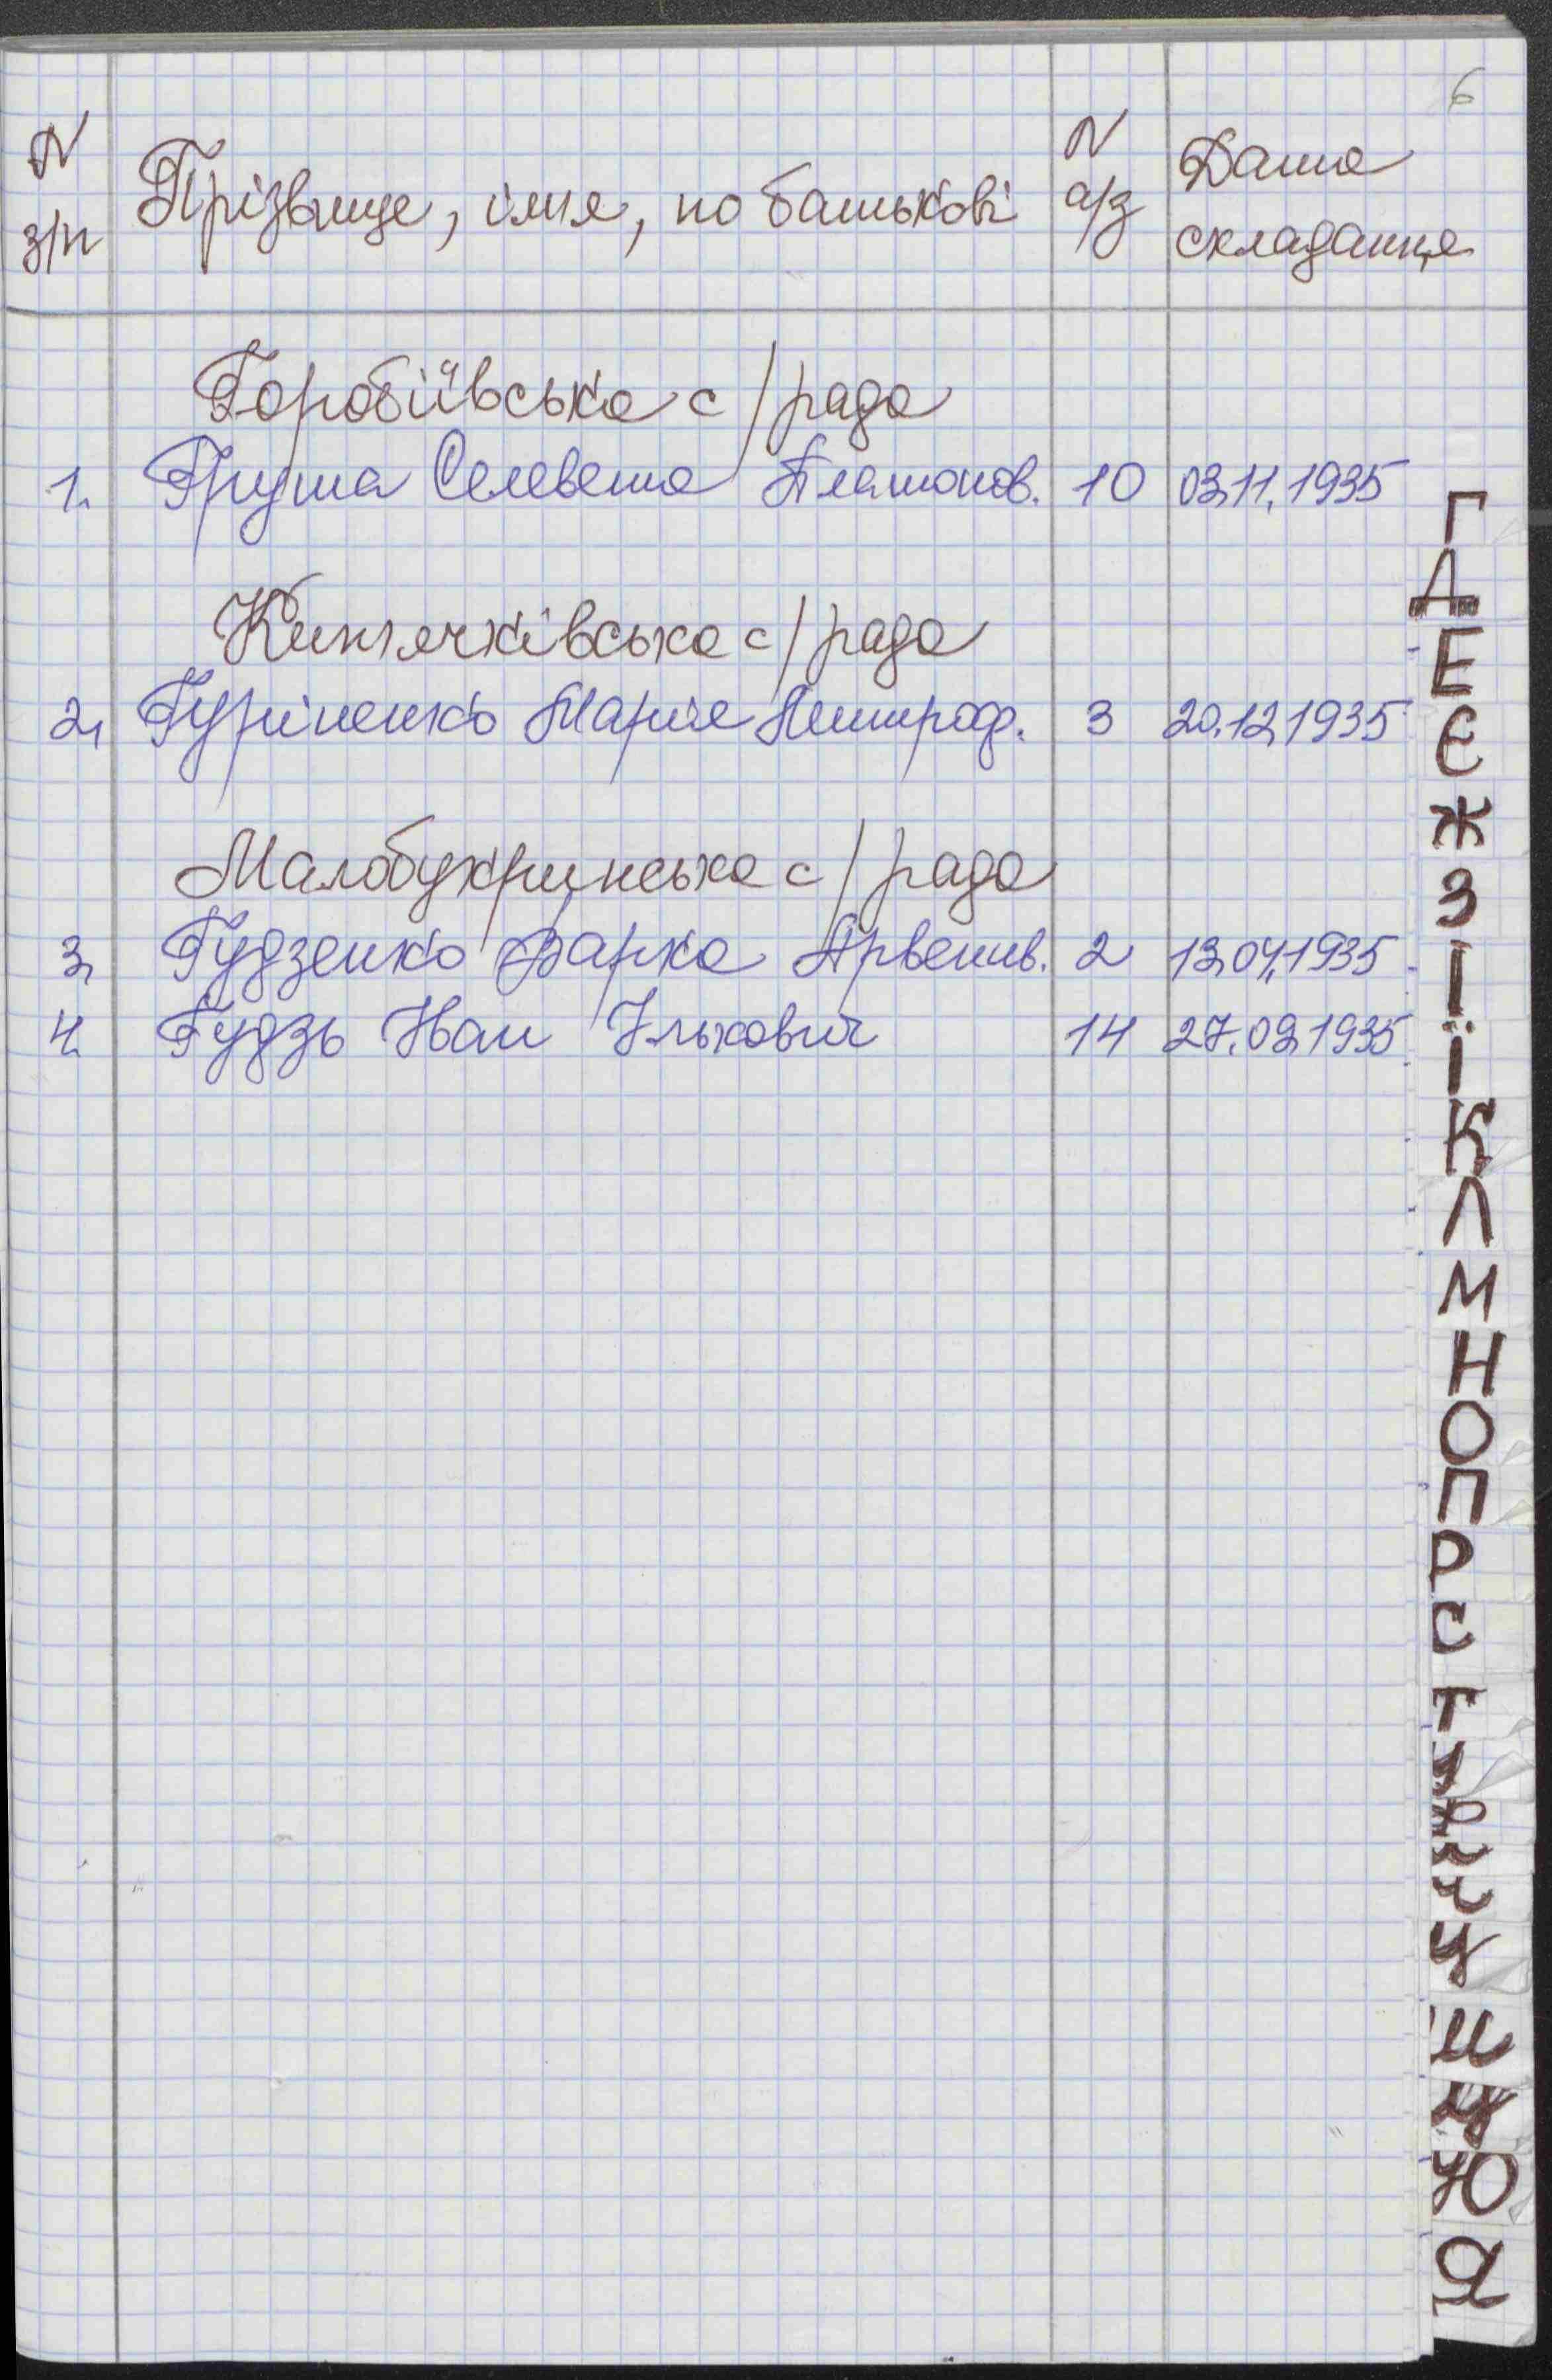 6
N з/п Прізвище, імя, по батькові N а/з Дата складання
Горобіївська с/рада
1. Груша Селевета Платонов. 10 03.11.1935
Кип'ячківська с/рада
2. Гуріненко Марія Митроф. 3 20.12.1935
Малобукринська с/рада
3. Гудзенко Варка Арвентів. 2 13.04.1935
4. Гудзь Иван Ількович 14 27.09.1935
Г
Д
Е
Є
Ж
З
І
Ї
К
Л
М
Н
О
П
Р
С
Т
У
Ч
Ш
Щ
Ю
Я